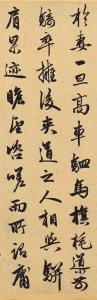 於妻一旦高車駟馬旗旄導前
騎卒擁後夾道之人相與駢
肩累迹瞻望咨嗟而所謂庸